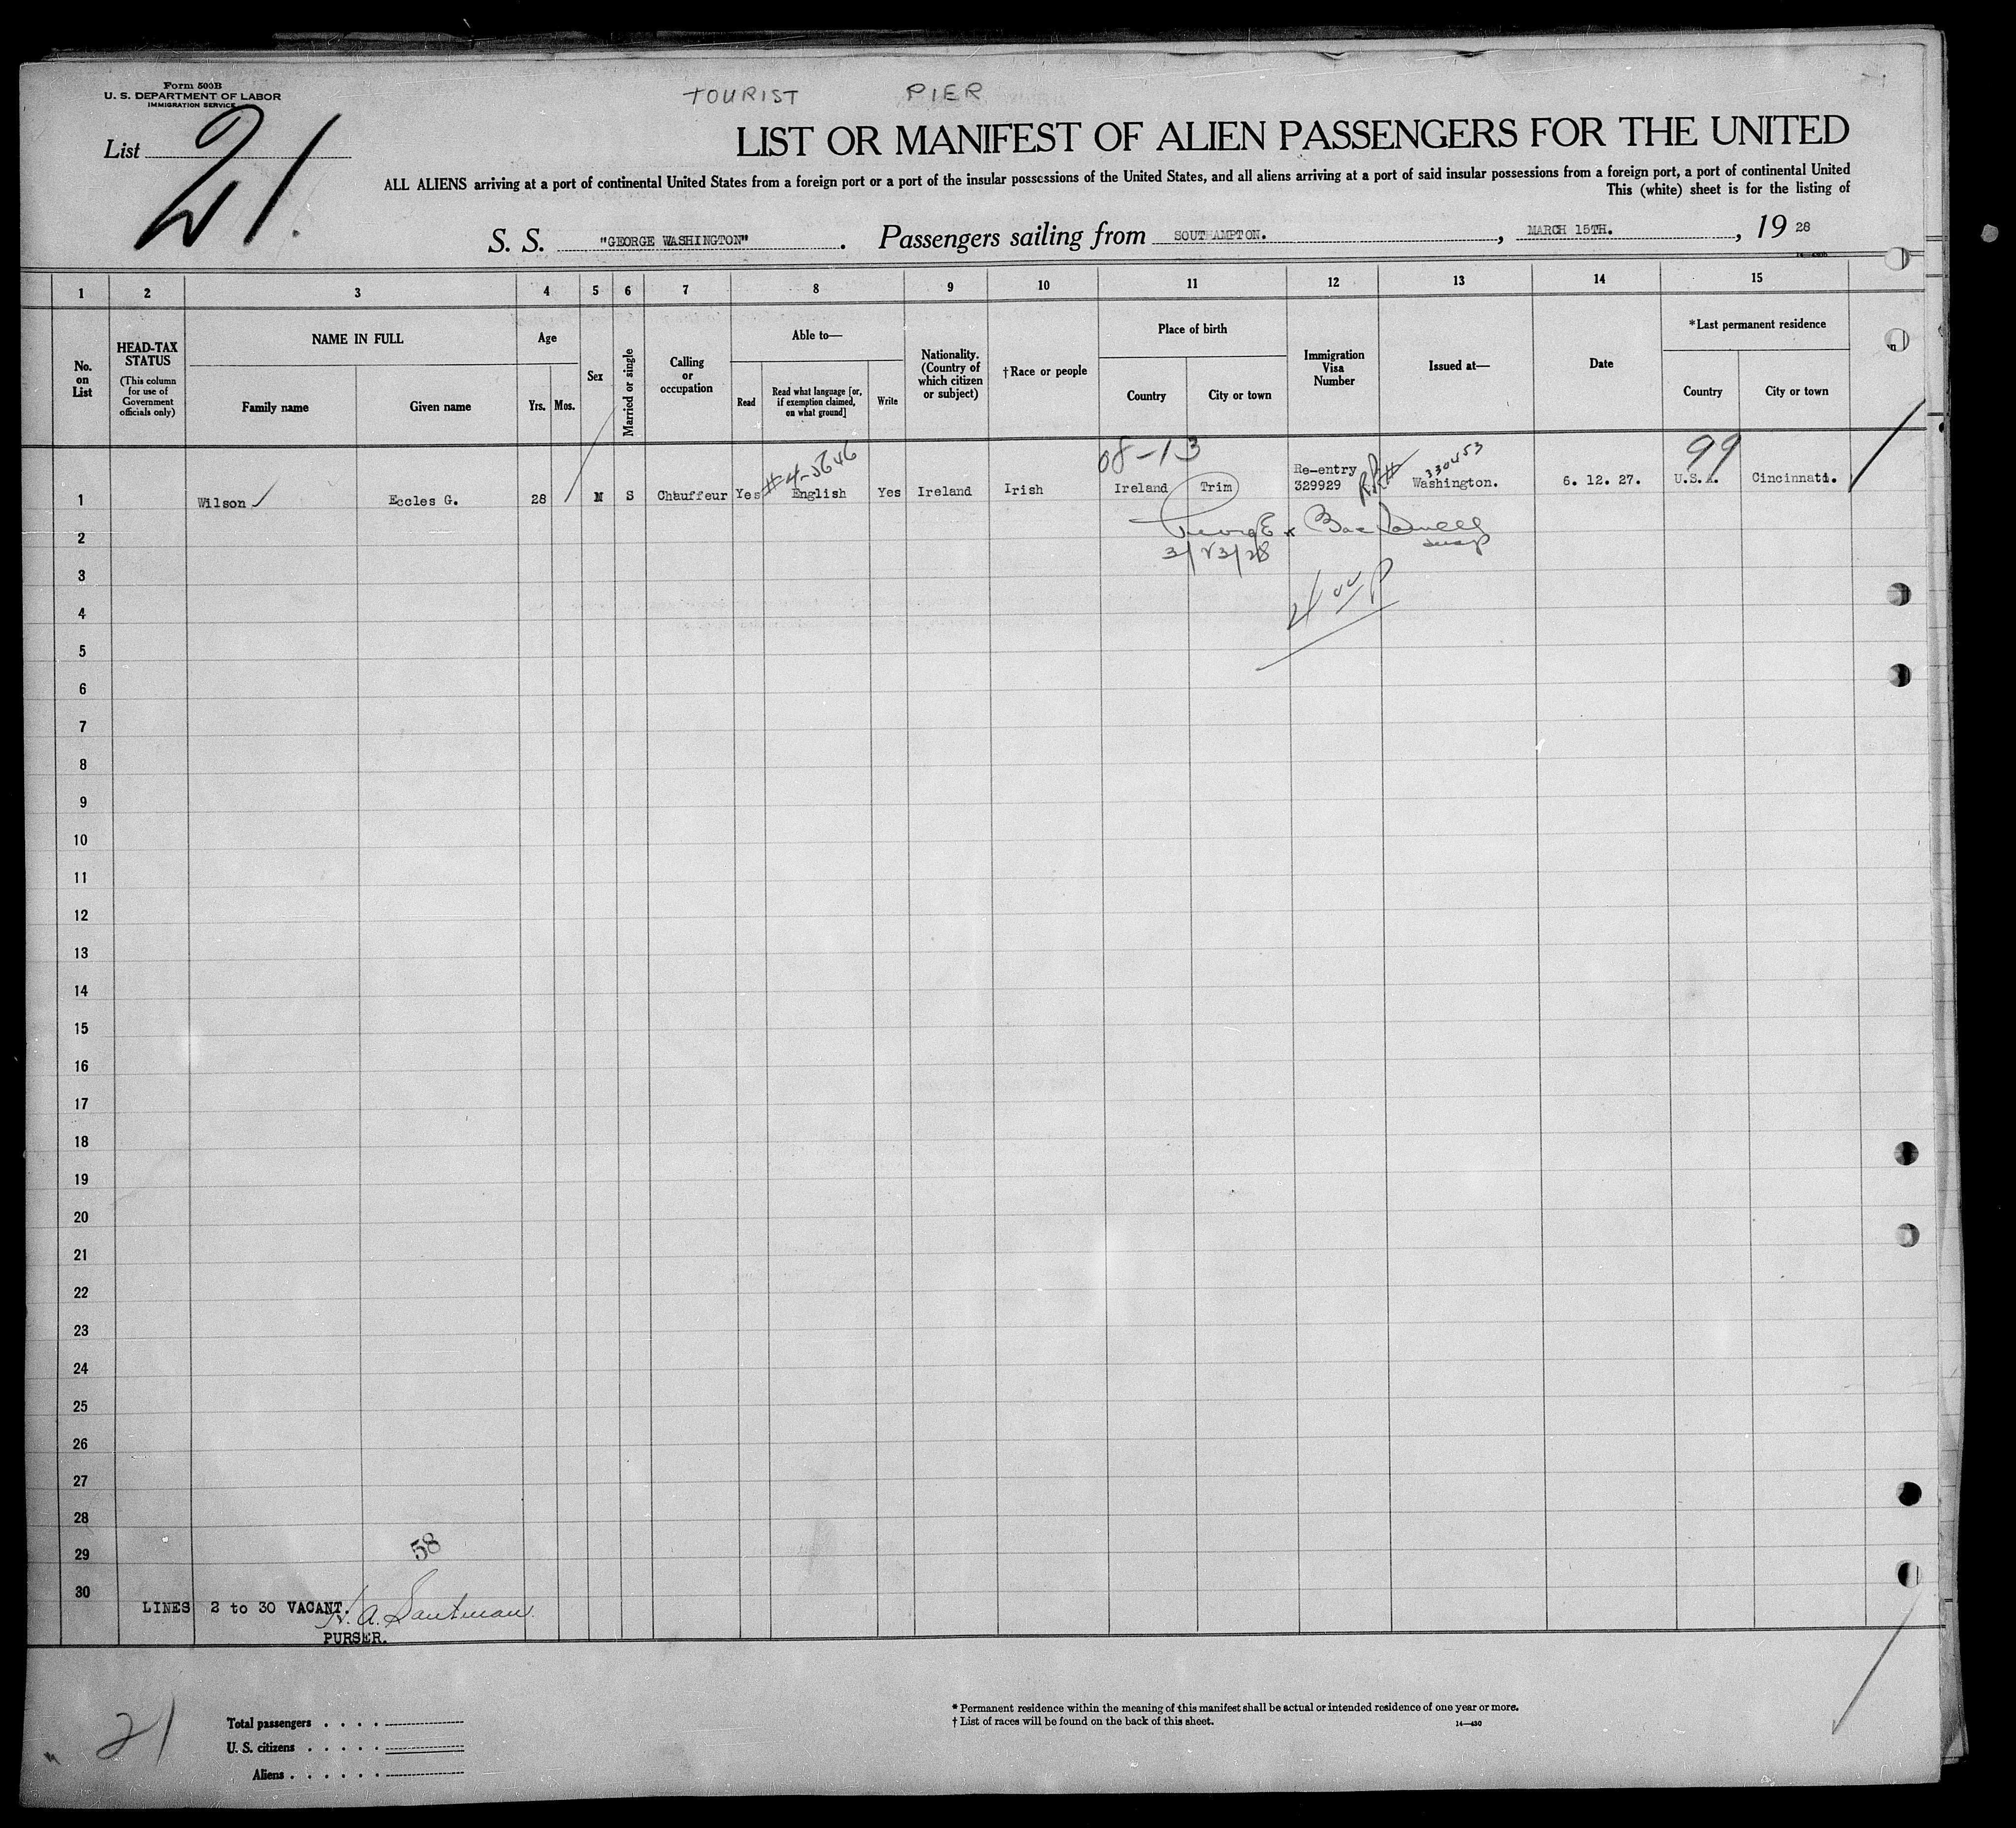 Form 500B
U. S. DEPARTMENT OF LABOR
IMMIGRATION SERVICE
TOURIST PIER
List 21.
LIST OR MANIFEST OF ALIEN PASSENGERS FOR THE UNITED
ALL ALIENS arriving at a port of continental United States from a foreign port or a port of the insular possessions of the United States, and all aliens arriving at a port of said insular possessions from a foreign port, a port of continental United
This (white) sheet is for the listing of
S. S. "GEORGE WASHINGTON" . Passengers sailing from SOUTHAMPTON. , MARCH 15TH. , 19 28
1 2 3 4 5 6 7 8 9 10 11 12 13 14 15
No. on List
HEAD-TAX STATUS
(This column for use of Government officials only)
NAME IN FULL
Family name Given name
Age
Yrs. Mos.
Sex
Married or single
Calling or occupation
Able to—
Read
Read what language [or, if exemption claimed, on what ground]
Write
Nationality. (Country of which citizen or subject)
†Race or people
Place of birth
Country City or town
Immigration Visa Number
Issued at—
Date
*Last permanent residence
Country City or town
08-13 330453 99
1 Wilson Eccles G. 28 M S Chauffeur Yes English Yes Ireland Irish Ireland Trim Re-entry 329929 Washington. 6. 12. 27. U.S.A. Cincinnati.
2
3/23/28
3
4
5
6
7
8
9
10
11
12
13
14
15
16
17
18
19
20
21
22
23
24
25
26
27
28
58
29
30
LINES 2 to 30 VACANT.
PURSER.
21
Total passengers . . . .
U. S. citizens . . . . .
Aliens . . . . . .
* Permanent residence within the meaning of this manifest shall be actual or intended residence of one year or more.
† List of races will be found on the back of this sheet. 14—430